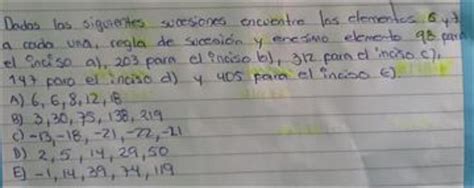 Dadas las siguientes sucesiones encuentre los elementos 6 y 7
a cada una, regla de sucesión y enesimo elemento 98 para
el inciso a), 203 para el inciso b), 312 para el inciso c),
147 para el inciso d) y 405 para el inciso e).
A) 6, 6, 8, 12, 18
B) 3, 30, 75, 138, 219
C) -13, -18, -21, -22, -21
D) 2, 5, 14, 29, 50
E) -1, 14, 39, 74, 119